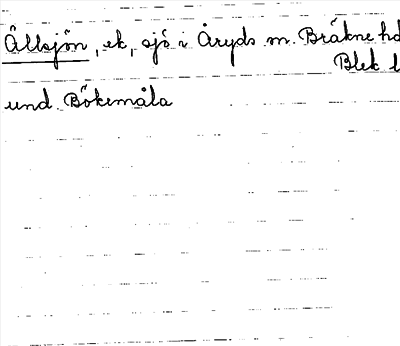 Ållsjön, ek, sjö i Åryds sn. Bräkne hd
Blek l
und. Bökemåla